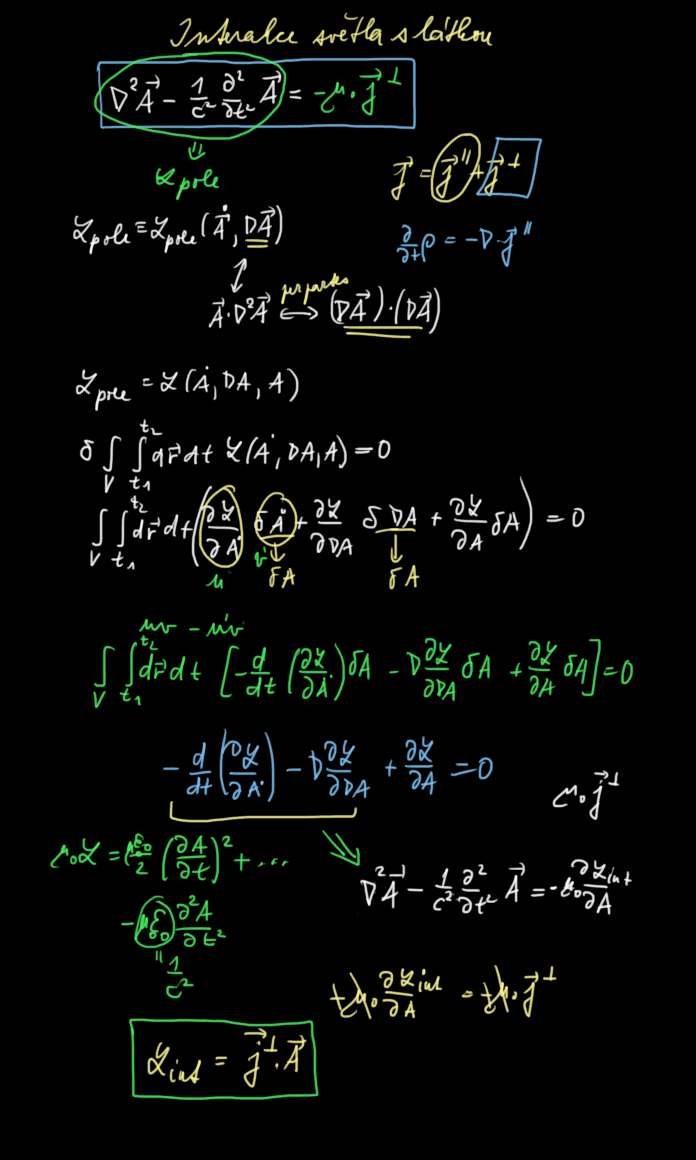 Interakce světla s látkou
∇²A⃗ − 1/c² ∂²/∂t² A⃗ = −μ₀ j⃗^⊥
⇓
ℒ pole
j⃗ = j⃗^∥ + j⃗^⊥
ℒ_pole ≡ ℒ_pole (A⃗̇, ∇A⃗)
∂/∂t ρ = −∇·j⃗^∥
↕
A⃗·∇²A⃗ ⟷ (∇A⃗)·(∇A⃗)
per partes
ℒ_pole = ℒ(Ȧ, ∇A, A)
δ ∫_V ∫_{t₁}^{t₂} dr⃗ dt ℒ(Ȧ, ∇A, A) = 0
∫_V ∫_{t₁}^{t₂} dr⃗ dt (∂ℒ/∂Ȧ δȦ + ∂ℒ/∂∇A δ∇A + ∂ℒ/∂A δA) = 0
u v̇ ↓ δA ↓ δA
uv − u̇v
∫_V ∫_{t₁}^{t₂} dr⃗ dt [−d/dt (∂ℒ/∂Ȧ) δA − ∇ ∂ℒ/∂∇A δA + ∂ℒ/∂A δA] = 0
−d/dt (∂ℒ/∂Ȧ) − ∇ ∂ℒ/∂∇A + ∂ℒ/∂A = 0
μ₀ j⃗^⊥
μ₀ℒ = μ₀ε₀/2 (∂A/∂t)² + ...
⇘
∇²A⃗ − 1/c² ∂²/∂t² A⃗ = −μ₀ ∂ℒ_int/∂A
−με₀ ∂²A/∂t²
"
1/c²
+μ₀ ∂ℒ_int/∂A = +μ₀ j⃗^⊥
ℒ_int = j⃗^⊥·A⃗